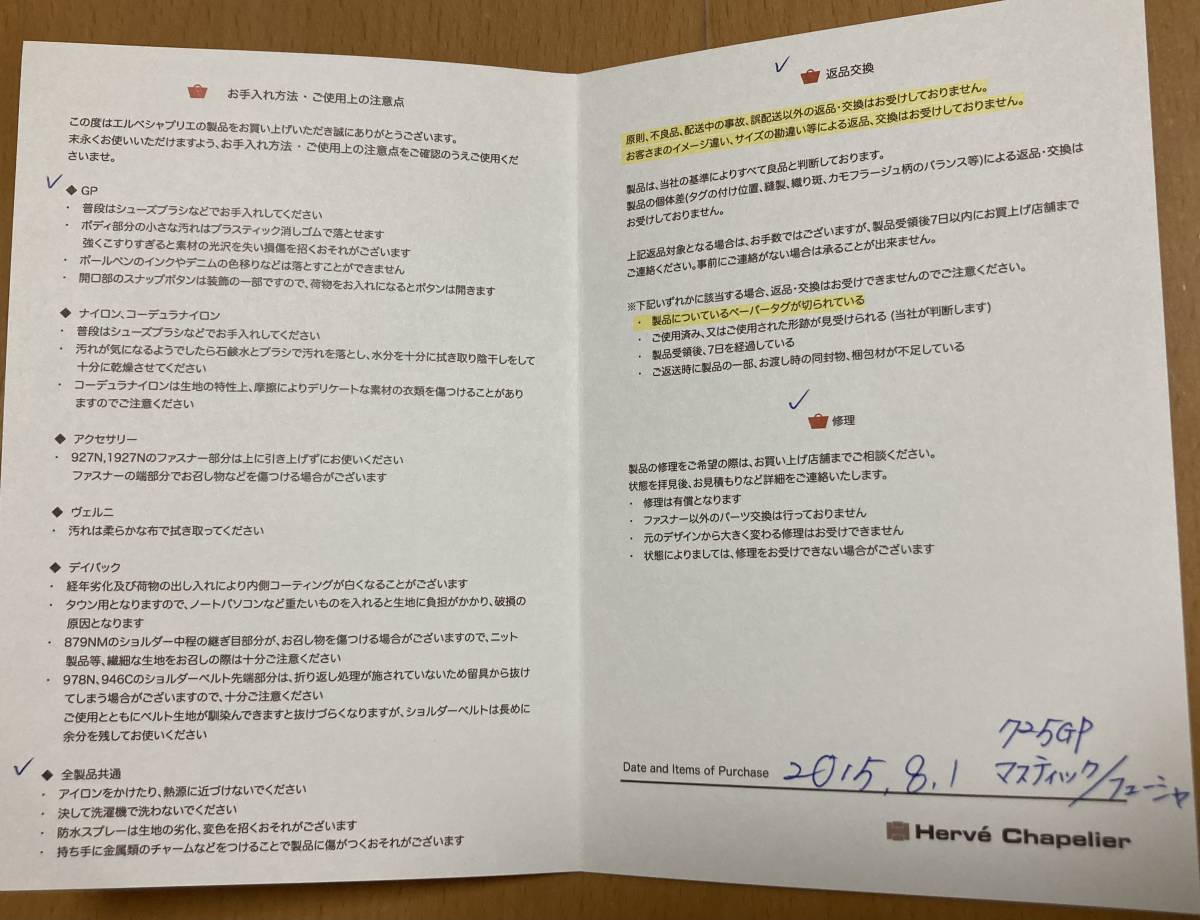 お手入れ方法・ご使用上の注意点
この度はエルベシャプリエの製品をお買い上げいただき誠にありがとうございます。
末永くお使いいただけますよう、お手入れ方法・ご使用上の注意点をご確認のうえご使用くだ
さいませ。
◆ GP
・ 普段はシューズブラシなどでお手入れしてください
・ ボディ部分の小さな汚れはプラスティック消しゴムで落とせます
強くこすりすぎると素材の光沢を失い損傷を招くおそれがございます
・ ボールペンのインクやデニムの色移りなどは落とすことができません
・ 開口部のスナップボタンは装飾の一部ですので、荷物をお入れになるとボタンは開きます
◆ ナイロン、コーデュラナイロン
・ 普段はシューズブラシなどでお手入れしてください
・ 汚れが気になるようでしたら石鹸水とブラシで汚れを落とし、水分を十分に拭き取り陰干しをして
十分に乾燥させてください
・ コーデュラナイロンは生地の特性上、摩擦によりデリケートな素材の衣類を傷つけることがあり
ますのでご注意ください
◆ アクセサリー
・ 927N,1927Nのファスナー部分は上に引き上げずにお使いください
ファスナーの端部分でお召し物などを傷つける場合がございます
◆ ヴェルニ
・ 汚れは柔らかな布で拭き取ってください
◆ デイパック
・ 経年劣化及び荷物の出し入れにより内側コーティングが白くなることがございます
・ タウン用となりますので、ノートパソコンなど重たいものを入れると生地に負担がかかり、破損の
原因となります
・ 879NMのショルダー中程の継ぎ目部分が、お召し物を傷つける場合がございますので、ニット
製品等、繊細な生地をお召しの際は十分ご注意ください
・ 978N、946Cのショルダーベルト先端部分は、折り返し処理が施されていないため留具から抜け
てしまう場合がございますので、十分ご注意ください
ご使用とともにベルト生地が馴染んできますと抜けづらくなりますが、ショルダーベルトは長めに
余分を残してお使いください
◆ 全製品共通
・ アイロンをかけたり、熱源に近づけないでください
・ 決して洗濯機で洗わないでください
・ 防水スプレーは生地の劣化、変色を招くおそれがございます
・ 持ち手に金属類のチャームなどをつけることで製品に傷がつくおそれがございます
返品交換
原則、不良品、配送中の事故、誤配送以外の返品・交換はお受けしておりません。
お客さまのイメージ違い、サイズの勘違い等による返品、交換はお受けしておりません。
製品は、当社の基準によりすべて良品と判断しております。
製品の個体差(タグの付け位置、縫製、織り斑、カモフラージュ柄のバランス等)による返品・交換は
お受けしておりません。
上記返品対象となる場合は、お手数ではございますが、製品受領後7日以内にお買上げ店舗まで
ご連絡ください。事前にご連絡がない場合は承ることが出来ません。
※下記いずれかに該当する場合、返品・交換はお受けできませんのでご注意ください。
・ 製品についているペーパータグが切られている
・ ご使用済み、又はご使用された形跡が見受けられる (当社が判断します)
・ 製品受領後、7日を経過している
・ ご返送時に製品の一部、お渡し時の同封物、梱包材が不足している
修理
製品の修理をご希望の際は、お買い上げ店舗までご相談ください。
状態を拝見後、お見積もりなど詳細をご連絡いたします。
・ 修理は有償となります
・ ファスナー以外のパーツ交換は行っておりません
・ 元のデザインから大きく変わる修理はお受けできません
・ 状態によりましては、修理をお受けできない場合がございます
725GP
Date and Items of Purchase 2015.8.1 マスティック/フューシャ
Hervé Chapelier